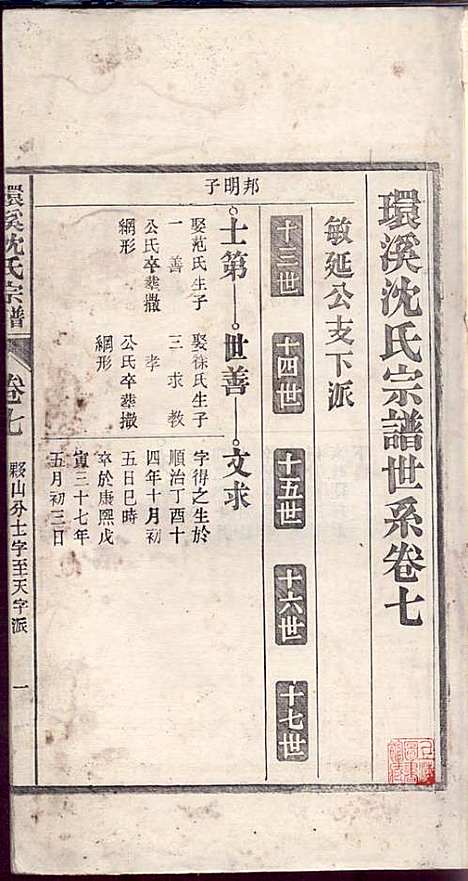 環溪沈氏宗譜世系卷七
敏延公支下派
十三世
十四世
十五世
十六世
十七世
邦明子
士第
世善
文求
娶范氏生子
一善
公氏卒葬撒
網形
娶徐氏生子
三求教
孝
公氏卒葬撒
網形
字得之生於
順治丁酉十
四年十月初
五日巳時
卒於康熙戊
寅三十七年
五月初三日
環溪沈氏宗譜
卷七
夥山分士字至天字派
一